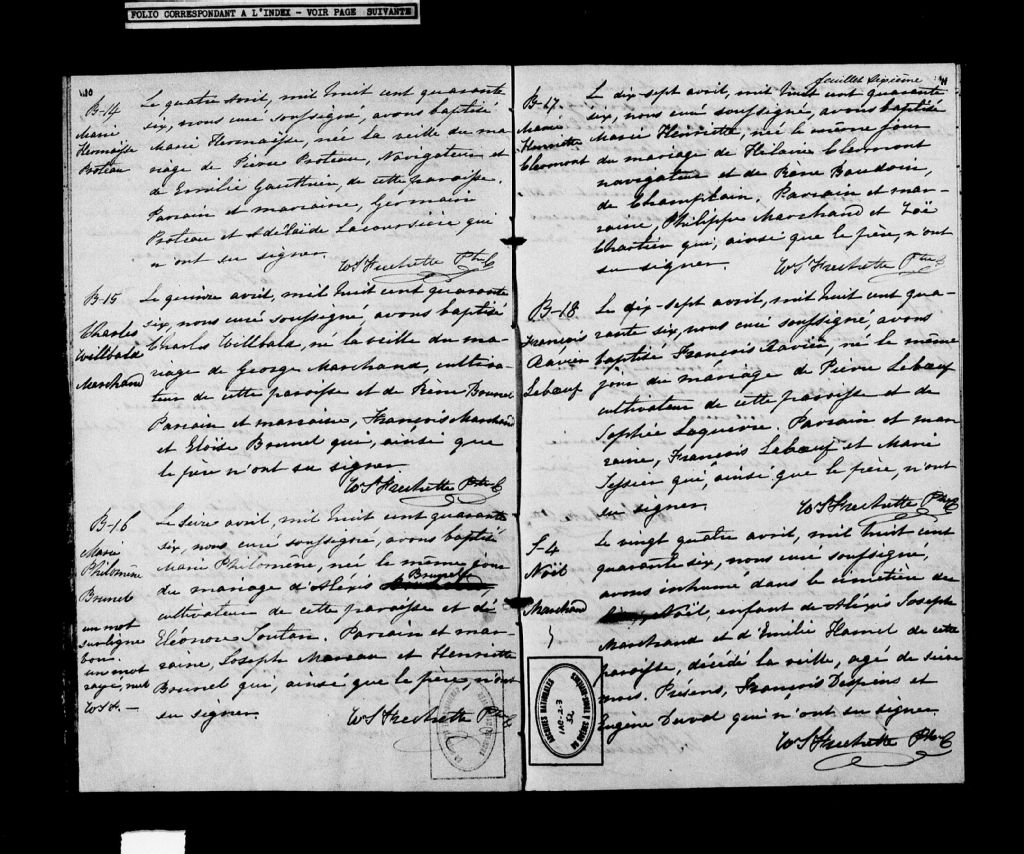 FOLIO CORRESPONDANT A L'INDEX - VOIR PAGE SUIVANTE
B-14
Marie
Hermaïsse
Proteau
Le quatre avril, mil huit cent quarante
six, nous curé soussigné, avons baptisé
Marie Hermaïsse, née la veille du ma-
riage de Pierre Proteau, Navigateur et
de Emilie Gauthier, de cette paroisse.
Parrain et marraine, Germain
Proteau et Adélaïde Lacoursière qui
n'ont su signer.
W S Frechette Ptre C
B-15
Charles
Willbald
Marchand
Le quinze avril, mil huit cent quarante
six, nous curé soussigné, avons baptisé
Charles Willbald, né la veille du ma-
riage de George Marchand, cultiva-
teur de cette paroisse et de Reine Brunel
Parrain et marraine, François Marchand
et Eloïse Brunel qui, ainsi que
le père n'ont su signer
W S Frechette Ptre C
B-16
Marie
Philomène
Brunel
un mot
surligne
bon.
un mot
rayé, nul
W S F. -
Le seize avril, mil huit cent quarante
six, nous curé soussigné, avons baptisé
Marie Philomène, née le même jour
du mariage d'Alexis Brunel
cultivateur de cette paroisse et de
Eléonore Toutan. Parrain et mar-
raine, Joseph Moreau et Henriette
Brunel qui, ainsi que le père, n'ont
su signer.
W S Frechette Ptre C
feuillet sixième
B-17.
Marie
Henriette
Clermont
Le dix-sept avril, mil huit cent quarante
six, nous curé soussigné, avons baptisé
Marie Henriette, née le même jour
du mariage de Hilaire Clermont
navigateur et de Reine Baudoin,
de Champlain, Parrain et mar-
raine, Philippe Marchand et Zoë
Chartier qui, ainsi que le père, n'ont
su signer.
W S Frechette Ptre C
B-18
François
Xavier
Lebœuf
Le dix-sept avril, mil huit cent qua-
rante six, nous curé soussigné, avons
baptisé François Xavier, né le même
jour du mariage de Pierre Lebœuf
cultivateur de cette paroisse et de
Sophie Laquerre. Parrain et mar-
raine, François Lebœuf et Marie
Tessier qui, ainsi que le père, n'ont
su signer.
W S Frechette Ptre C
S-4
Noël
Marchand
Le vingt quatre avril, mil huit cent
quarante six, nous curé soussigné,
avons inhumé dans le cimetière du
Noël, enfant de Alexis Joseph
Marchand et d'Emilie Hamel de cette
paroisse, décédé la veille, agé de seize
mois. Présens, François Despins et
Eugène Duval qui n'ont su signer.
W S Frechette Ptre C
ARCHIVES NATIONALES
DU QUÉBEC À TROIS-RIVIÈRES